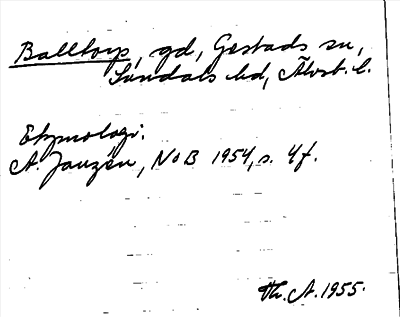 Balltorp, gd, Gestads sn,
Sundals hd, Älvsb. l.
Etymologi.
A. Janzén, NoB 1954, s. 4f.
Th. A. 1955.